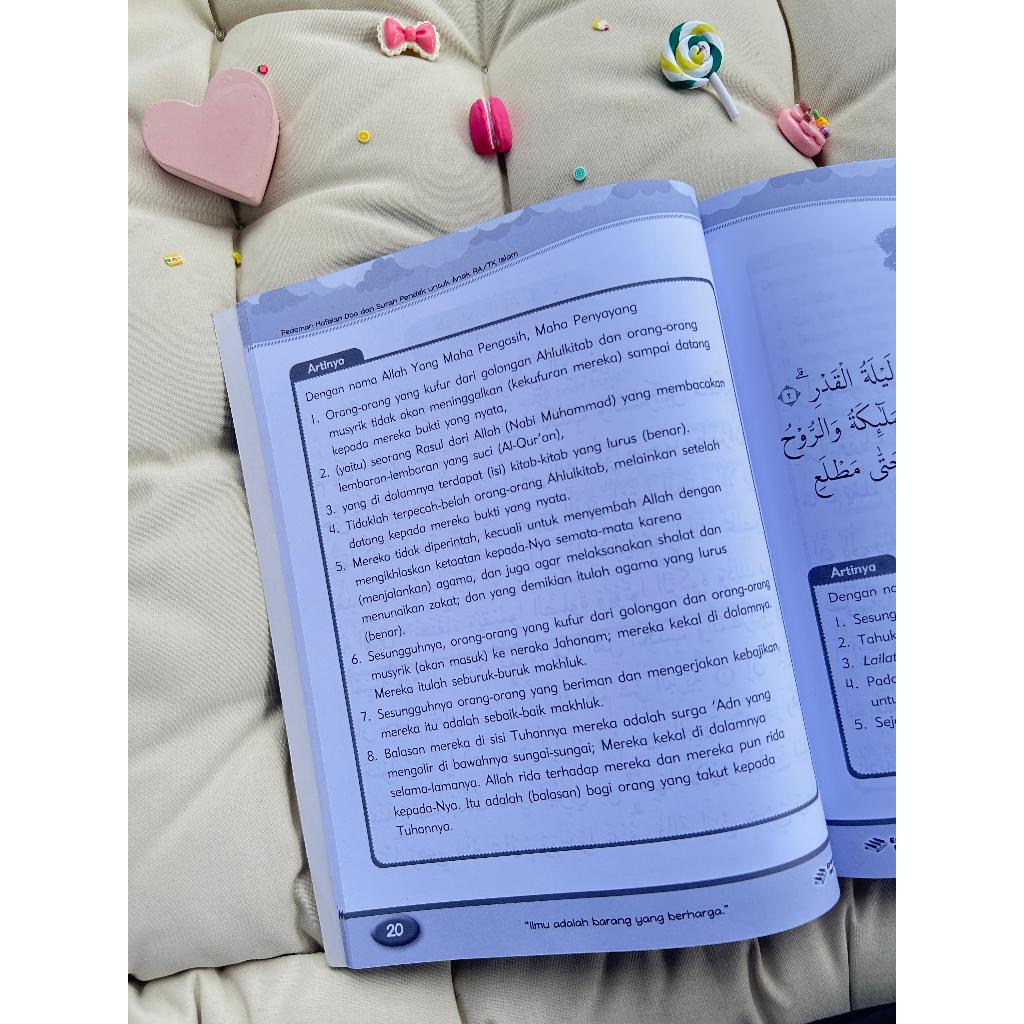 Pedoman Hafalan Doa dan Surah Pendek untuk Anak RA/TK Islam
Artinya
Dengan nama Allah Yang Maha Pengasih, Maha Penyayang
1. Orang-orang yang kufur dari golongan Ahlulkitab dan orang-orang
musyrik tidak akan meninggalkan (kekufuran mereka) sampai datang
kepada mereka bukti yang nyata,
2. (yaitu) seorang Rasul dari Allah (Nabi Muhammad) yang membacakan
lembaran-lembaran yang suci (Al-Qur'an),
3. yang di dalamnya terdapat (isi) kitab-kitab yang lurus (benar).
4. Tidaklah terpecah-belah orang-orang Ahlulkitab, melainkan setelah
datang kepada mereka bukti yang nyata.
5. Mereka tidak diperintah, kecuali untuk menyembah Allah dengan
mengikhlaskan ketaatan kepada-Nya semata-mata karena
(menjalankan) agama, dan juga agar melaksanakan shalat dan
menunaikan zakat; dan yang demikian itulah agama yang lurus
(benar).
6. Sesungguhnya, orang-orang yang kufur dari golongan dan orang-orang
musyrik (akan masuk) ke neraka Jahanam; mereka kekal di dalamnya.
Mereka itulah seburuk-buruk makhluk.
7. Sesungguhnya orang-orang yang beriman dan mengerjakan kebajikan,
mereka itu adalah sebaik-baik makhluk.
8. Balasan mereka di sisi Tuhannya mereka adalah surga 'Adn yang
mengalir di bawahnya sungai-sungai; Mereka kekal di dalamnya
selama-lamanya. Allah rida terhadap mereka dan mereka pun rida
kepada-Nya. Itu adalah (balasan) bagi orang yang takut kepada
Tuhannya.
20
"Ilmu adalah barang yang berharga."
لَيْلَةُ الْقَدْرِۗ ٢
وَالرُّوْحُ
حَتّٰى مَطْلَعِ
Artinya
Dengan
1.
2.
3.
4.
5.